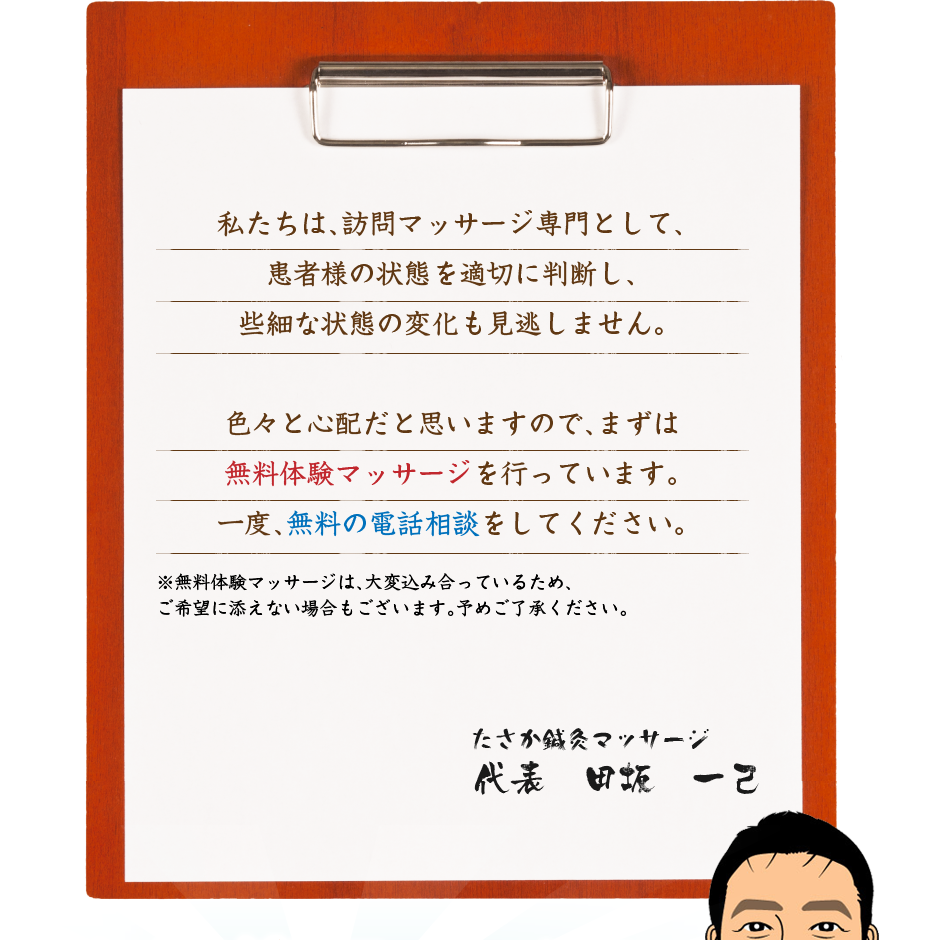 私たちは、訪問マッサージ専門として、
患者様の状態を適切に判断し、
些細な状態の変化も見逃しません。
色々と心配だと思いますので、まずは
無料体験マッサージを行っています。
一度、無料の電話相談をしてください。
※無料体験マッサージは、大変込み合っているため、
ご希望に添えない場合もございます。予めご了承ください。
たさか鍼灸マッサージ
代表　田坂　一己